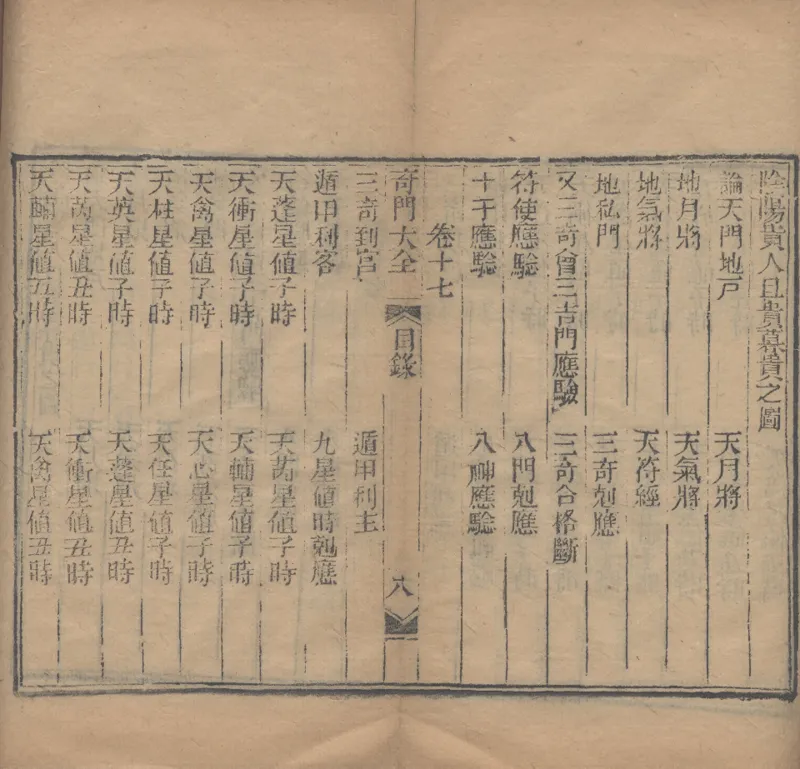 陰陽貴人旦貴暮貴之圖
論天門地戶　天月將
地月將　天氣將
地氣將　天符經
地私門　三奇剋應
又三奇會三吉門應驗　三奇合格斷
符使應驗　八門剋應
十干應驗　八神應驗
卷十七
奇門大全　目錄　八
三奇到宮　遁甲利主
遁甲利客　九星値時剋應
天蓬星値子時　天芮星値子時
天衝星値子時　天輔星値子時
天禽星値子時　天心星値子時
天柱星値子時　天任星値子時
天英星値子時　天蓬星値丑時
天芮星値丑時　天衝星値丑時
天輔星値丑時　天禽星値丑時